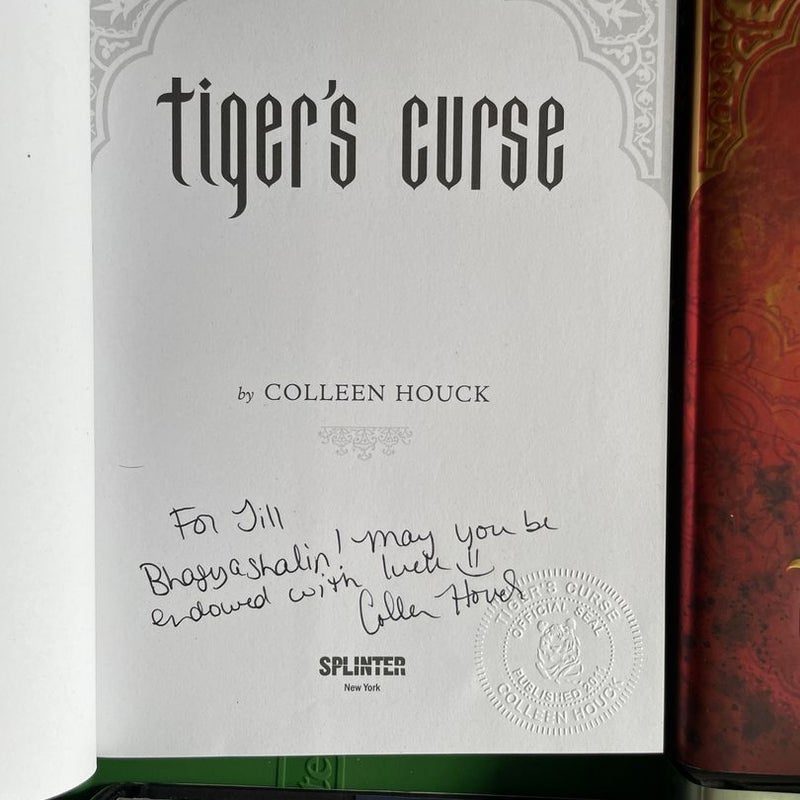 tiger's curse
by COLLEEN HOUCK
For Jill
Bhagyashalin! May you be
endowed with luck
Colleen Houck
SPLINTER
New York
TIGER'S CURSE
OFFICIAL SEAL
PUBLISHED 2011
COLLEEN HOUCK